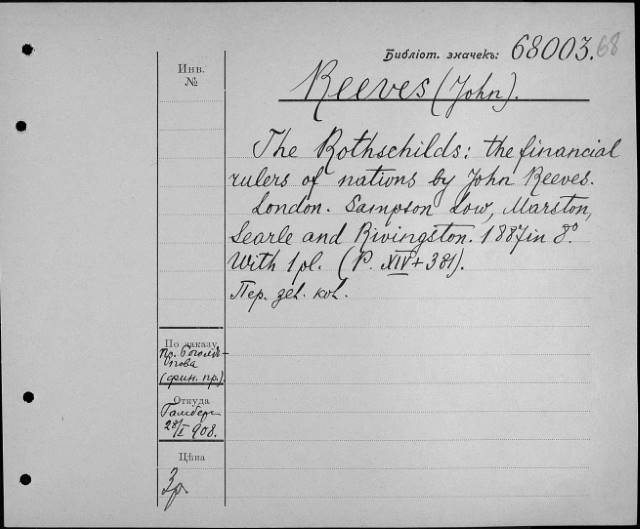 Библіот. значекъ: 68003. 68
Инв.
№
Reeves (John).
The Rothschilds: the financial
rulers of nations by John Reeves.
London. Sampson Low, Marston,
Searle and Rivingston. 1887 in 8°.
With 1 pl. (P. XIV + 381).
Пер. zel. kol.
По заказу
Пр. Боголѣ-
пова
(фин. пр.)
Откуда
Гамберг
28/I 908.
Цѣна
3р